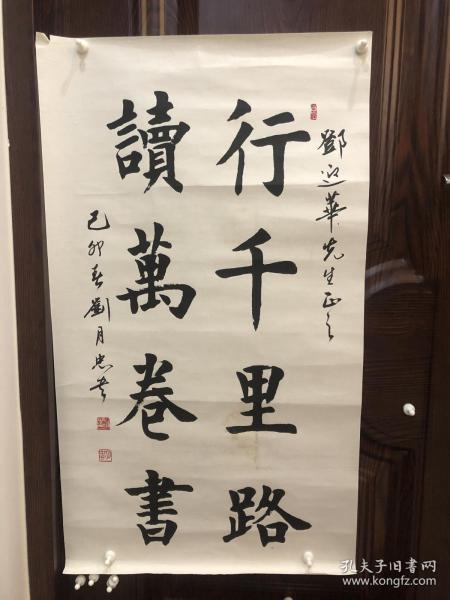 鄧迎華先生正之
行千里路
讀萬卷書
己卯春劉月忠书
孔夫子旧书网
www.kongfz.com